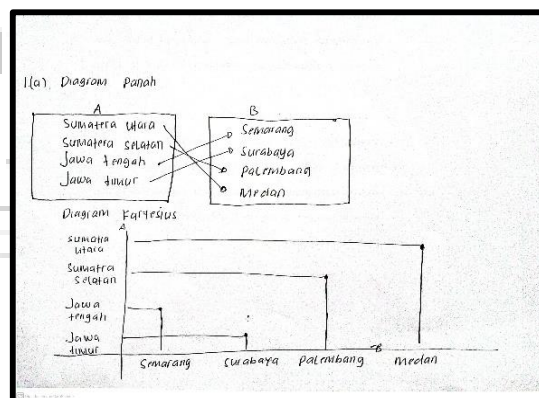 1(a) Diagram Panah
A
B
Sumatera Utara
Sumatera Selatan
Jawa tengah
Jawa timur
Semarang
Surabaya
Palembang
Medan
Diagram Kartesius
A
Sumatra
utara
Sumatra
Selatan
Jawa
tengah
Jawa
timur
Semarang
Surabaya
Palembang
B
Medan